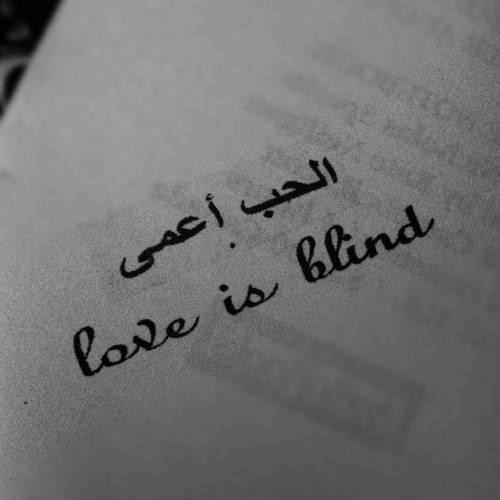 الحب أعمى
love is blind